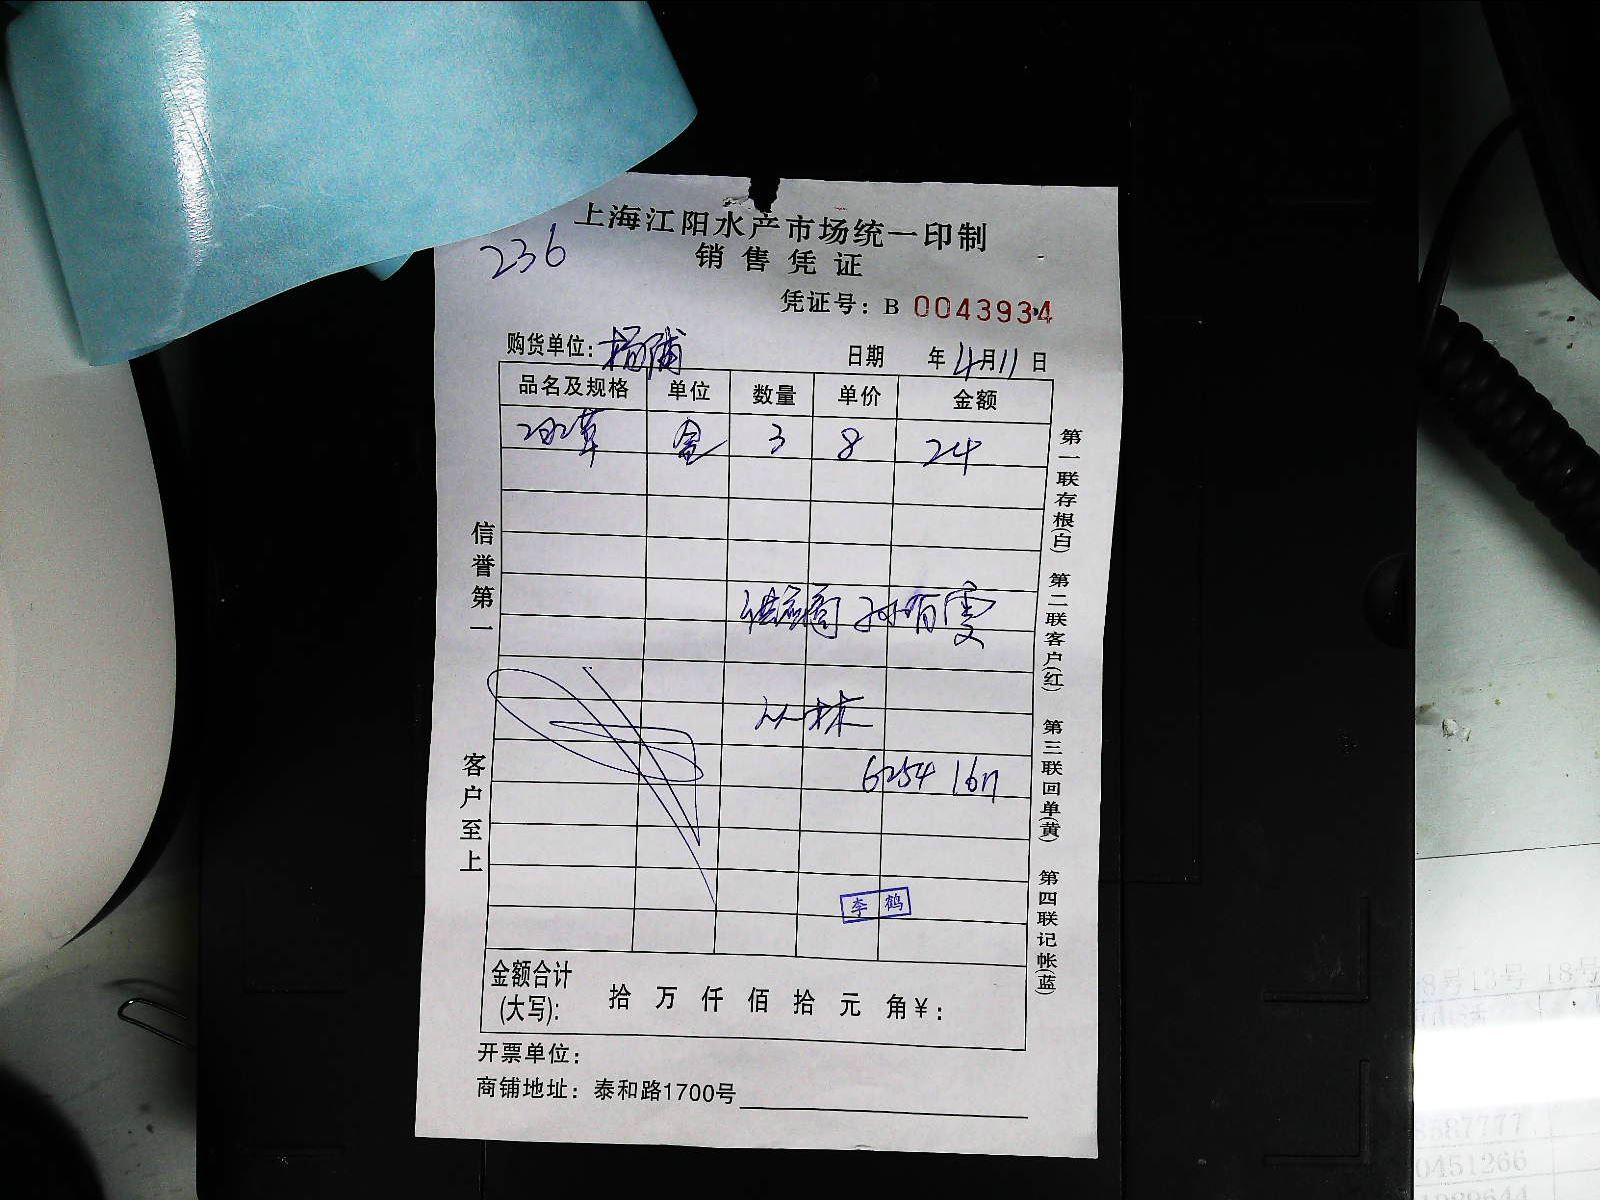 上海江阳水产市场统一印制
236
销售凭证
凭证号：B 0043934
购货单位：杨浦 日期 年4月11日
品名及规格 单位 数量 单价 金额
冰草 盒 3 8 24
6254 1617
李鹤
金额合计(大写): 拾 万 仟 佰 拾 元 角 ¥：
开票单位：
商铺地址：泰和路1700号
信誉第一
客户至上
第一联存根(白)
第二联客户(红)
第三联回单(黄)
第四联记帐(蓝)
8号 18号 18号
8587777
0451266